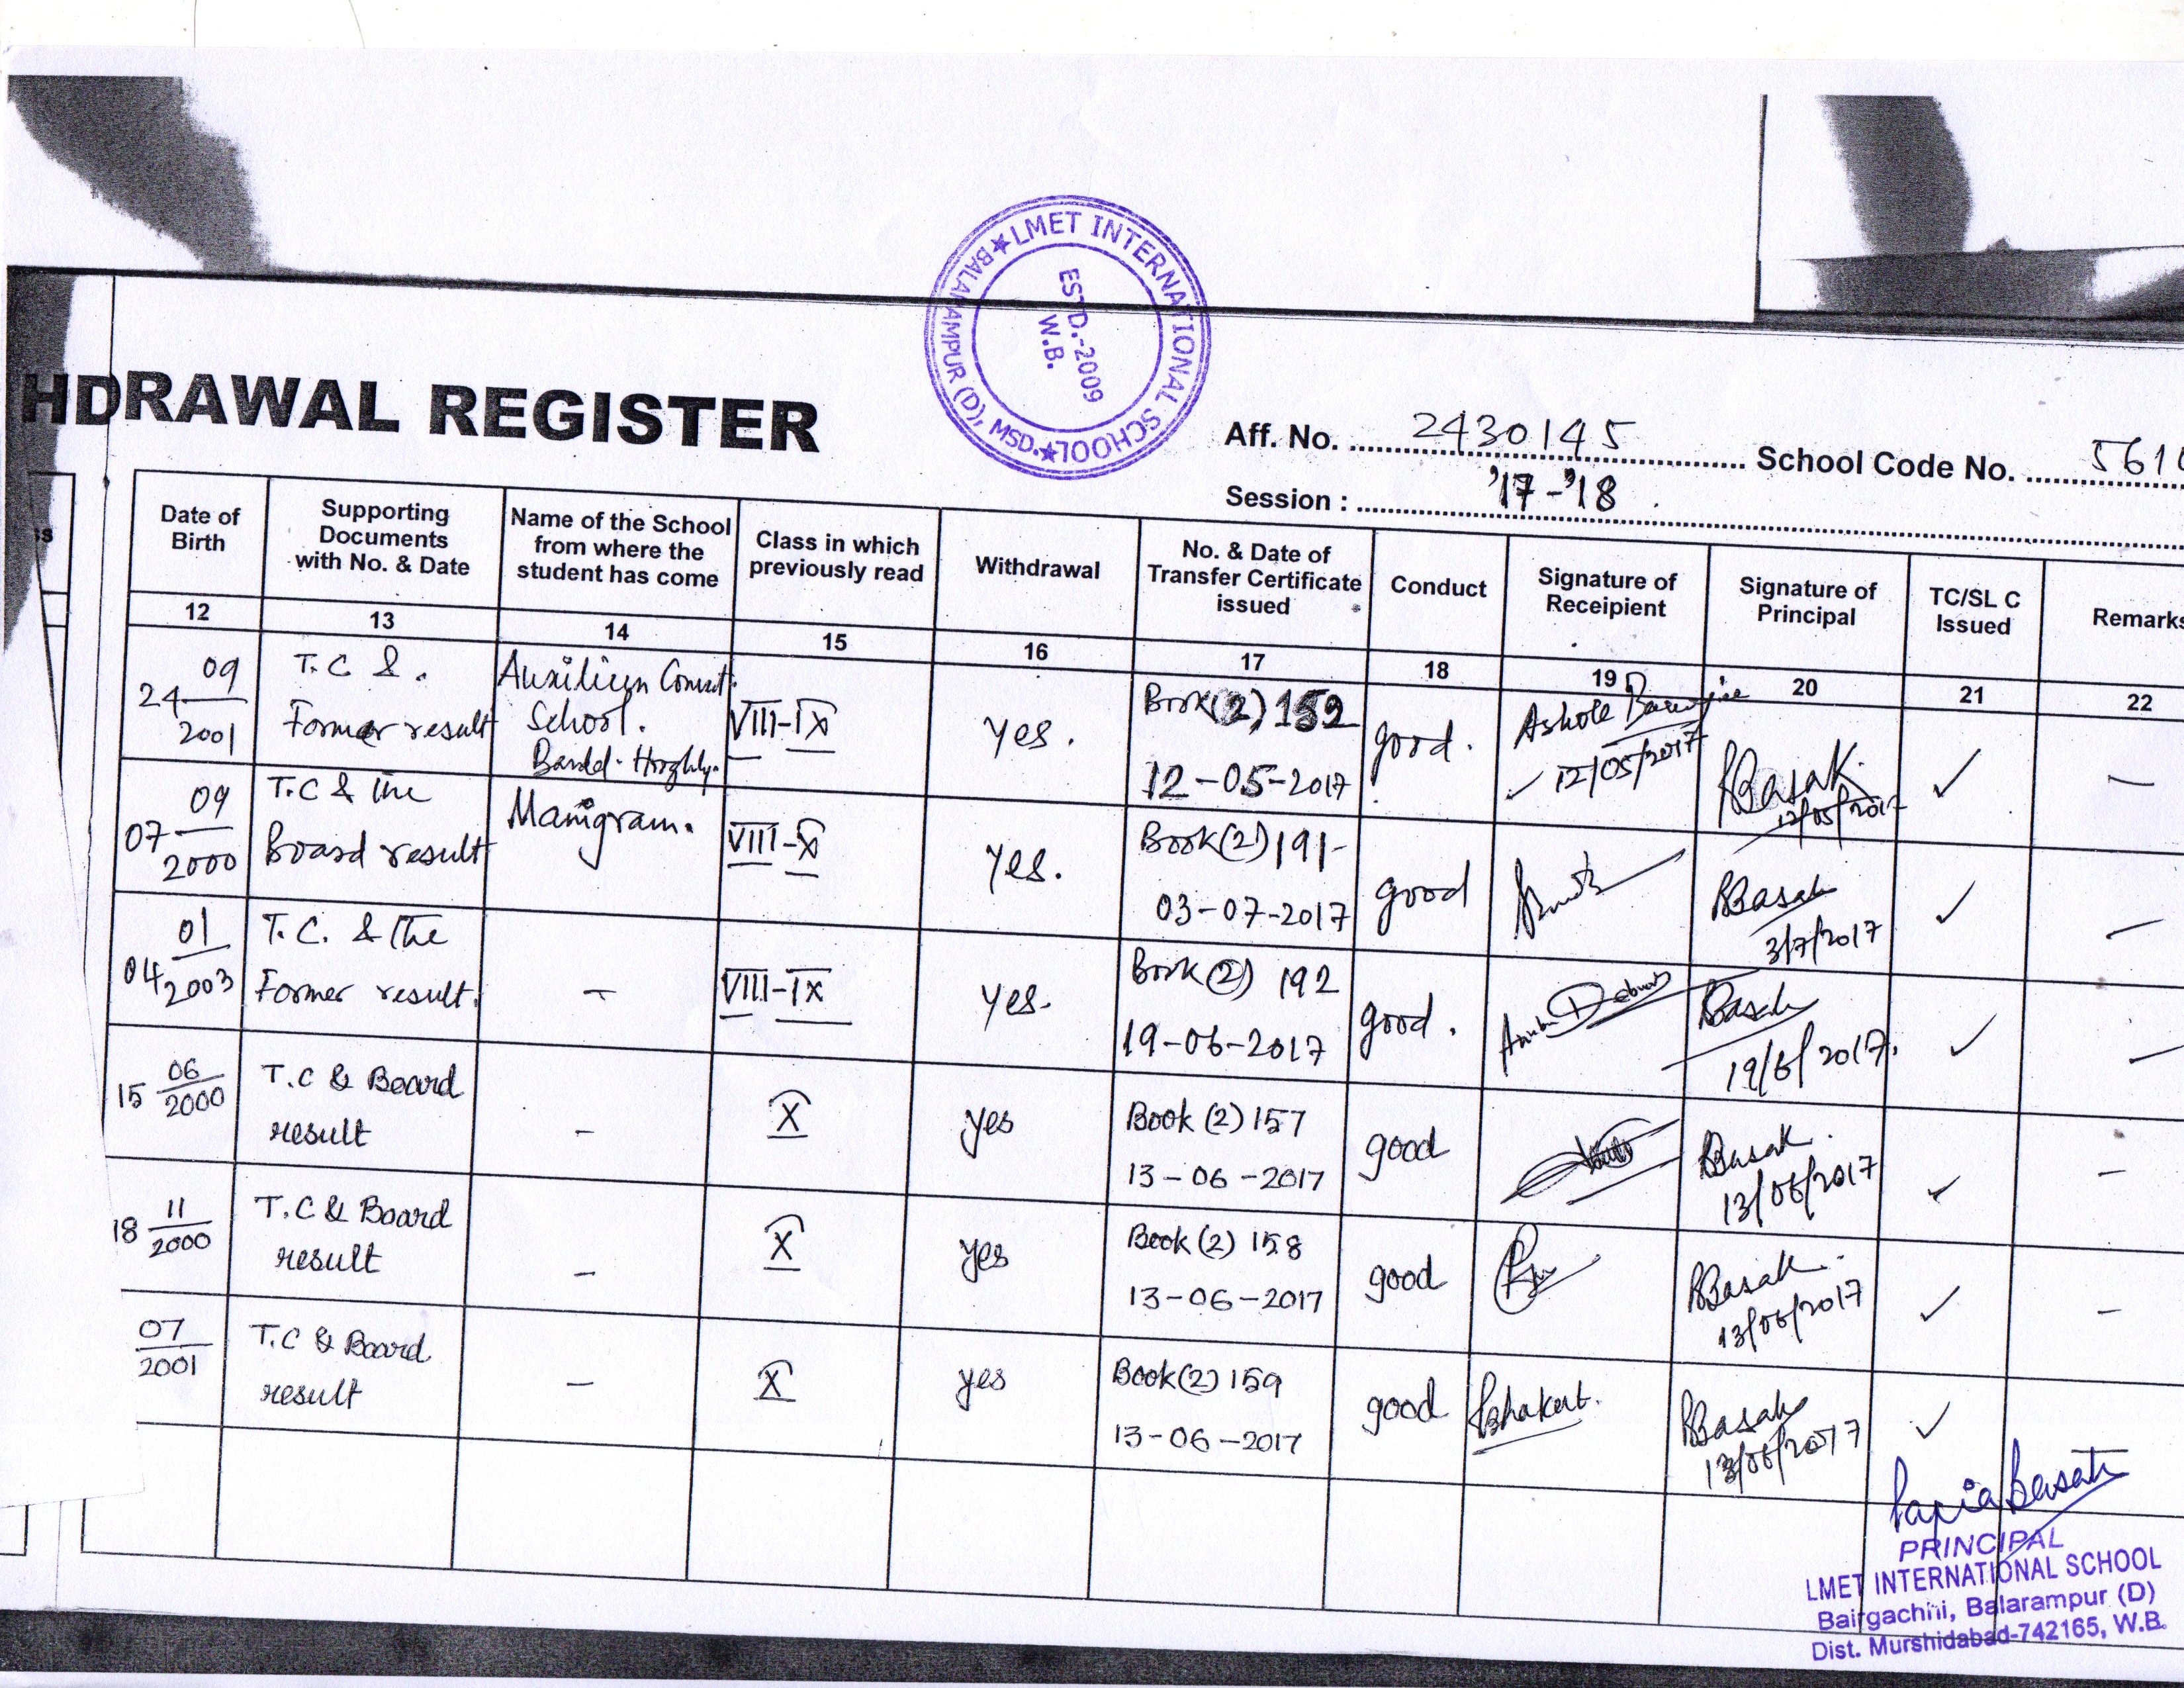 ★ LMET INTERNATIONAL SCHOOL ★ BALARAMPUR (D), MSD.
ESTD.-2009
W.B.
HDRAWAL REGISTER
Aff. No. 2430145 School Code No. 561
Session : '17-'18
Date of Birth
Supporting Documents with No. & Date
Name of the School from where the student has come
Class in which previously read
Withdrawal
No. & Date of Transfer Certificate issued
Conduct
Signature of Receipient
Signature of Principal
TC/SL C Issued
Remarks
12 13 14 15 16 17 18 19 20 21 22
24 09/2001
T.C &.
Former result
School.
VIII-IX
Yes.
Book(2) 152
12-05-2017
good.
Ashoke Banerjee
12/05/2017
Basak
12/05/2017
✓ —
07 09/2000
T.C & the
Board result
Manigram.
VIII-X
Yes.
Book(2) 191-
03-07-2017
good
Basak
3/7/2017
✓ —
04 01/2003
T.C. & the
Former result.
—
VIII-IX
Yes.
Book(2) 192
19-06-2017
good.
Basak
19/6/2017.
✓ —
15 06/2000
T.C & Board
result
—
X
yes
Book (2) 157
13-06-2017
good
Basak.
13/06/2017
✓ —
18 11/2000
T.C & Board
result
—
X
yes
Book (2) 158
13-06-2017
good
Basak.
13/06/2017
✓ —
07/2001
T.C & Board
result
—
X
yes
Book(2) 159
13-06-2017
good
Bhakat.
Basak
13/06/2017
✓
Papia Basak
PRINCIPAL
LMET INTERNATIONAL SCHOOL
Bairgachhi, Balarampur (D)
Dist. Murshidabad-742165, W.B.